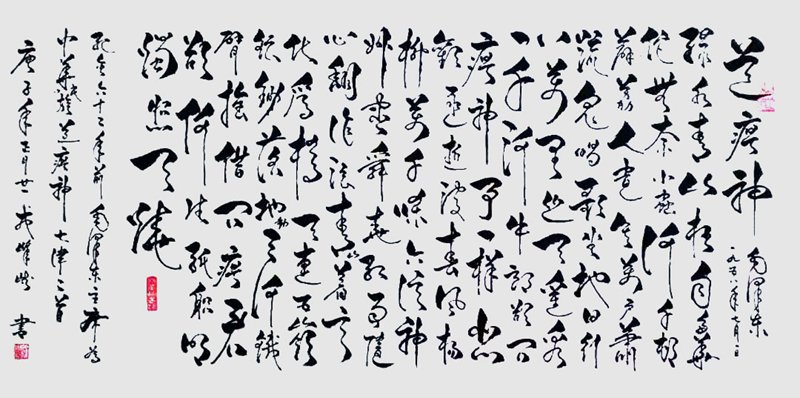 送瘟神
毛泽东
一九五八年七月一日
绿水青山枉自多华
佗無奈小蟲何千村
薜荔人遗矢萬户萧
疏鬼唱歌坐地日行
八萬里巡天遥看
一千河牛郎欲问
瘟神事一样悲
歡逐逝波春風楊
柳萬千條六億神
州盡舜堯红雨随
心翻作浪青山着意
化為橋天连五嶺
银锄落地動三河铁
臂摇借问瘟君
欲何往纸船明
烛照天烧
纪念六十二年前毛泽东主席为
中华民族送瘟神七律二首
庚子年正月廿一
书